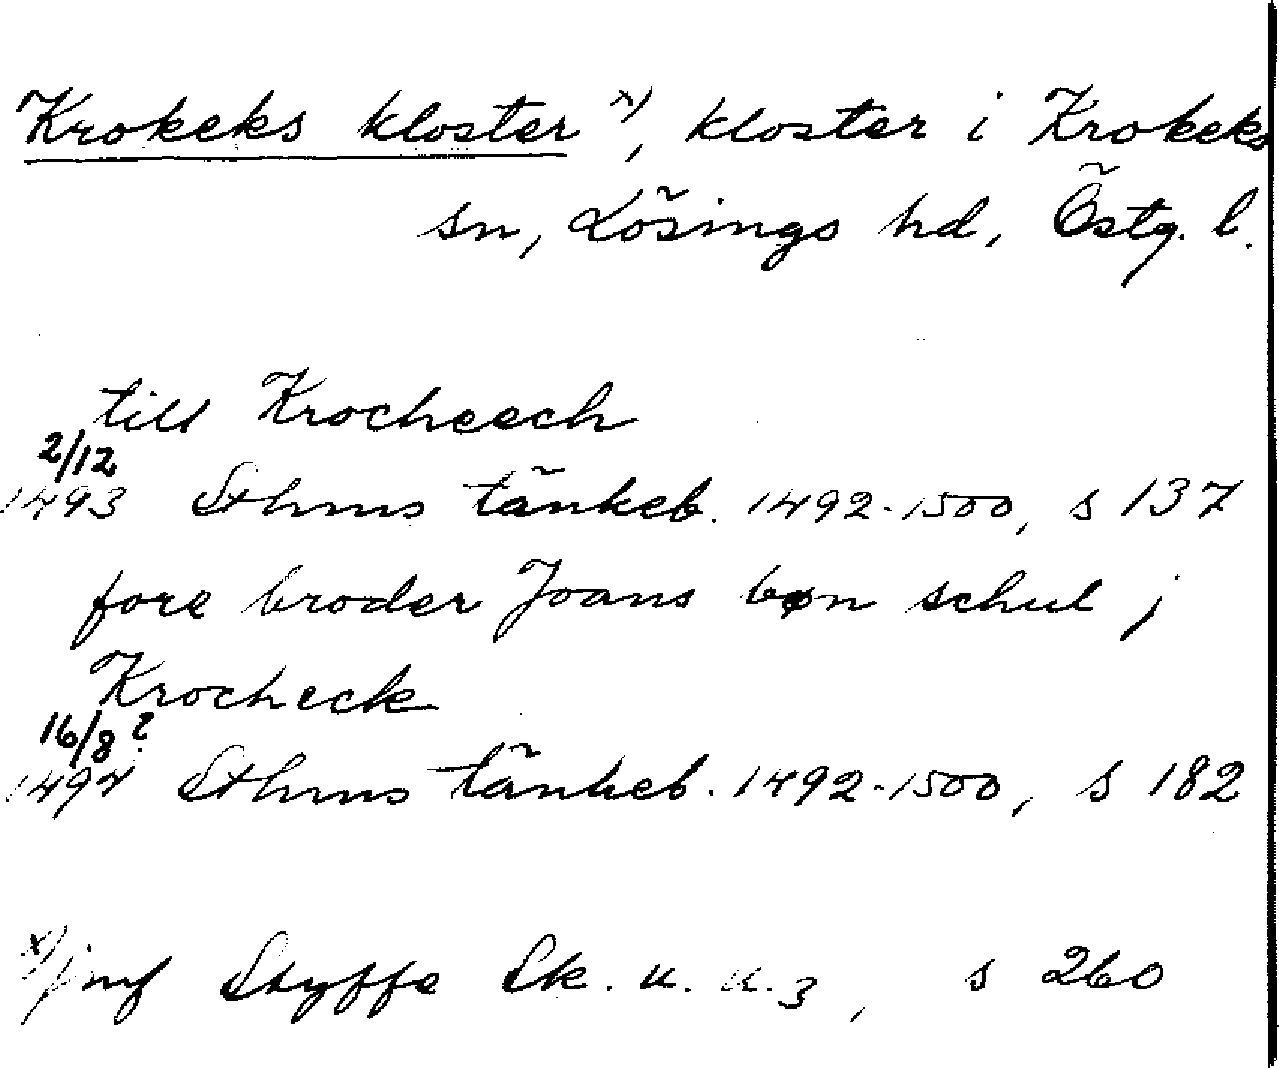 Krokeks kloster x), kloster i Krokeks
sn, Lösings hd, Östg. l.
till Krocheech
2/12
1493 Sthms tänkeb. 1492-1500, s 137
fore broder Joans bøn schul j
Krocheck
16/8?
1494 Sthms tänkeb. 1492-1500, s 182
x) jmf Styffe Sk. u. u. 3, s 260